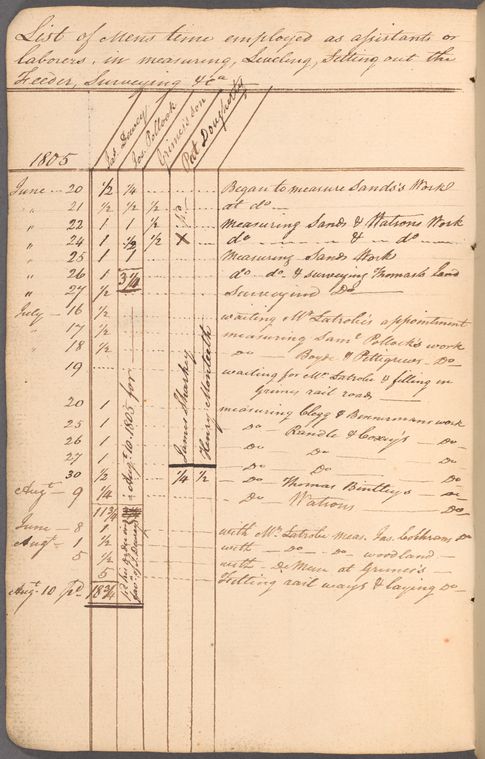 List of Mens time employed as assistants or
laborers. in measuring, Leveling, Setting out the
Feeder, Surveying &ca
1805 Jas. Dewey Jos. Pollock Grimes's son Pat Dougherty
June 20 1/2 1/4 Began to measure Sands's Work
" 21 1/2 1/2 1/2 at do
" 22 1 1 1/2 measuring Sands & Watsons Work
" 24 1 1/2 1/2 X do & do
" 25 1 1 measuring Sands Work
" 26 1 3 3/4 do do & surveying Thomas's land
" 27 1/2 Surveying Do
July 16 1/2 waiting Mr. Latrobe's appointment
" 17 1/2 measuring Saml. Pollock's work
" 18 1/2 Do Boyd & Pettigrews Do
19 waiting for Mr. Latrobe & filling in
Grimes rail road
20 1 measuring Clegg & work
25 1 Do Randle & Coxey's Do
26 1 Do Do Do
27 1 Do Do
30 1/2 1/4 1/2 Do Thomas Bintleys Do
Augt. 9 1/4 Do Watsons Do
11 3/4
June 8 1 with Mr. Latrobe meas. Jas. Cochrans Do
Augt. 1 1/2 with Do Do woodland
5 1/2 with Do Mean at Grimes's
5 Fitting rail ways & laying Do
Augt. 10 pd. 18 3/4
James Sharkey
Henry Monteeth
Augt. 10. 1805 for
pd. his order in
favr. of J. Dewey